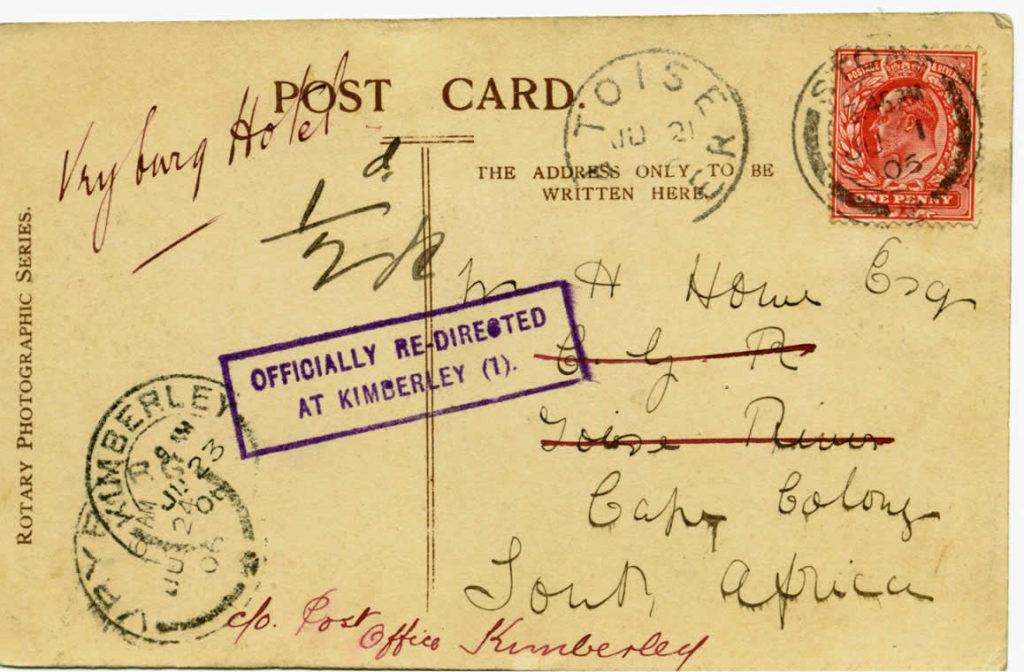 POST CARD.
Vryburg Hotel
THE ADDRESS ONLY TO BE
WRITTEN HERE.
ROTARY PHOTOGRAPHIC SERIES.
TOISE R
JU 21
JU 1
05
POSTAGE
ONE PENNY
1/2 d
Mr H Howe Esq
C. G. R
Toise River
Cape Colony
South Africa
OFFICIALLY RE-DIRECTED
AT KIMBERLEY (1).
KIMBERLEY
JU 23
VRYB
AM
JU 24
05
c/o. Post
Office Kimberley